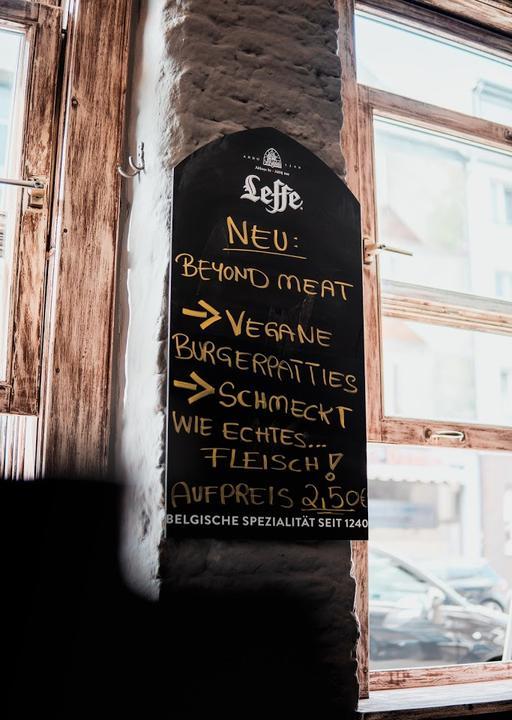 ANNO 1240
Leffe
NEU:
BEYOND MEAT
→ VEGANE
BURGERPATTIES
→ SCHMECKT
WIE ECHTES...
FLEISCH!
AUFPREIS 2,50€
BELGISCHE SPEZIALITÄT SEIT 1240